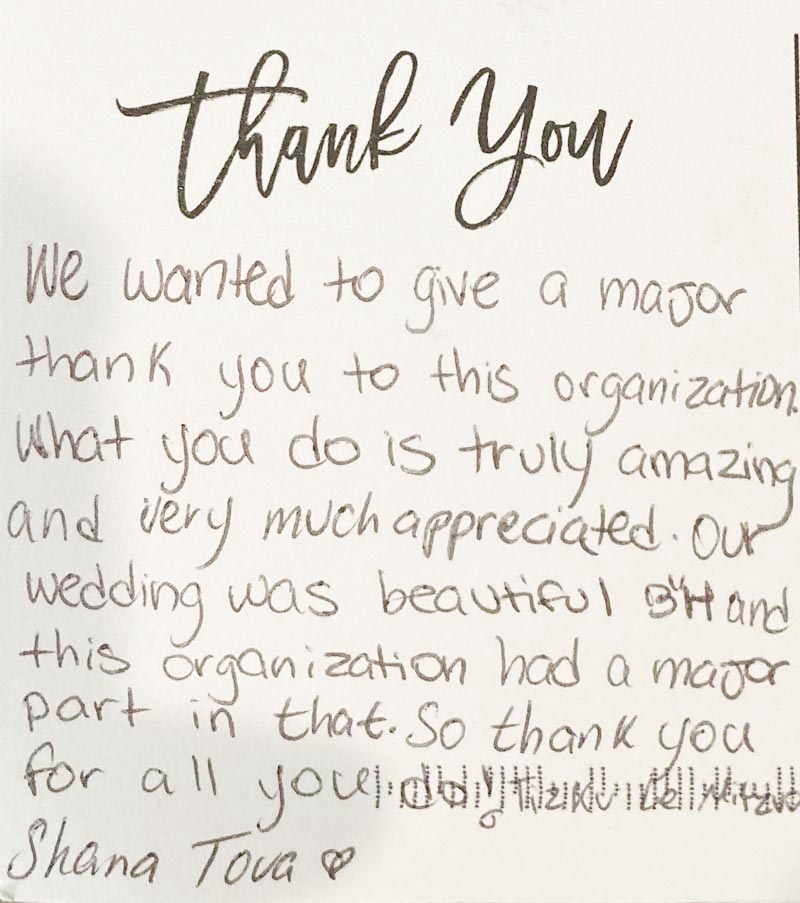 Thank You
We wanted to give a major
thank you to this organization.
What you do is truly amazing
and very much appreciated. Our
wedding was beautiful B"H and
this organization had a major
part in that. So thank you
for all you do! Tizku Le Mitzvo
Shana Tova ♡